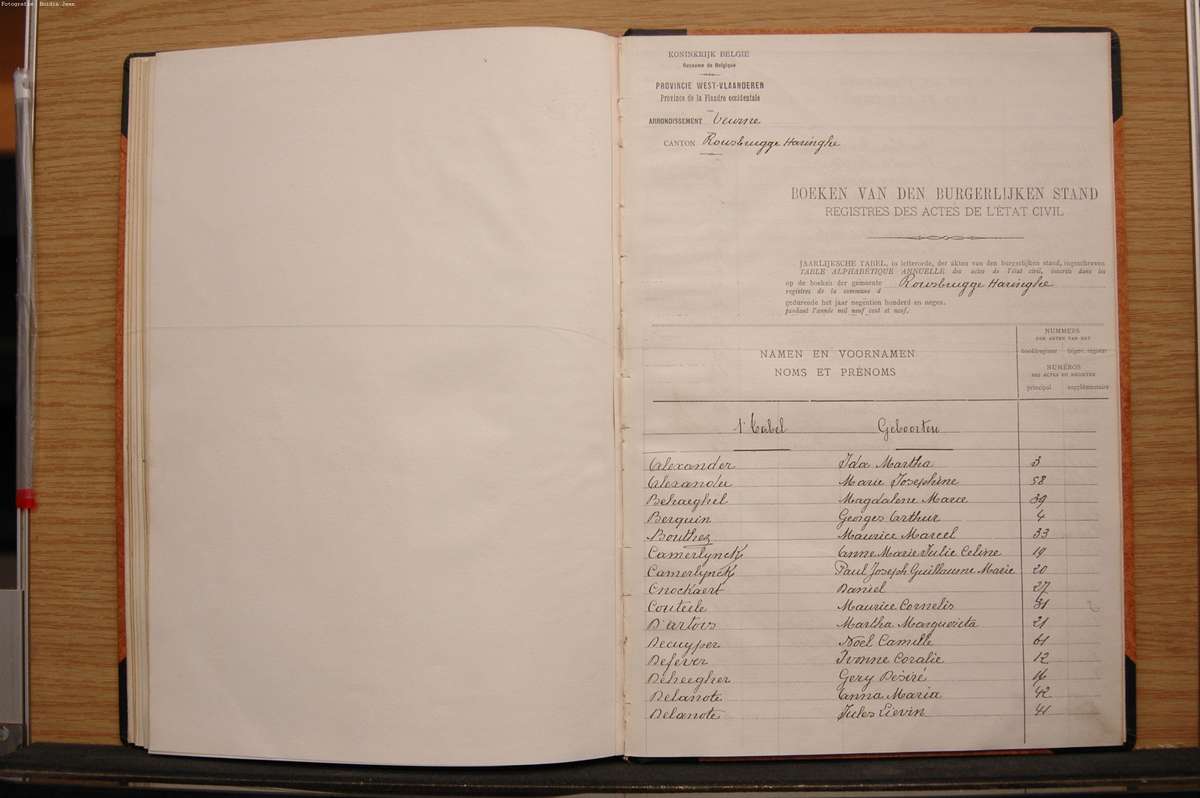 Fotografie: Boidin Jean
KONINKRIJK BELGIE
Royaume de Belgique
PROVINCIE WEST-VLAANDEREN
Province de la Flandre occidentale
ARRONDISSEMENT Veurne
CANTON Rousbrugge Haringhe
BOEKEN VAN DEN BURGERLIJKEN STAND
REGISTRES DES ACTES DE L'ÉTAT CIVIL
JAARLIJKSCHE TABEL, in letterorde, der akten van den burgerlijken stand, ingeschreven
TABLE ALPHABÉTIQUE ANNUELLE des actes de l'état civil, inscrits dans les
op de boeken der gemeente Rousbrugge Haringhe
registres de la commune d
gedurende het jaar negentien honderd en negen.
pendant l'année mil neuf cent et neuf.
NAMEN EN VOORNAMEN
NOMS ET PRÉNOMS
NUMMERS
DER AKTEN VAN HET
hoofdregister bijgev. register
NUMÉROS
DES ACTES DU REGISTRE
principal supplémentaire
1e Tabel Geboorten
Alexander Ida Martha 3
Alexander Marie Josephine 58
Behaeghel Magdalene Marie 39
Berquin Georges Arthur 4
Bouthez Maurice Marcel 33
Camerlynck Anne Marie Julie Celine 19
Camerlynck Paul Joseph Guillaume Marie 20
Cnockaert Daniel 27
Couteele Maurice Cornelis 31
D'artois Martha Marguereta 21
Decuyper Noël Camille 61
Defever Ivonne Coralie 12
Deheegher Gery Désiré 16
Delanote Anna Maria 42
Delanote Jules Lievin 41